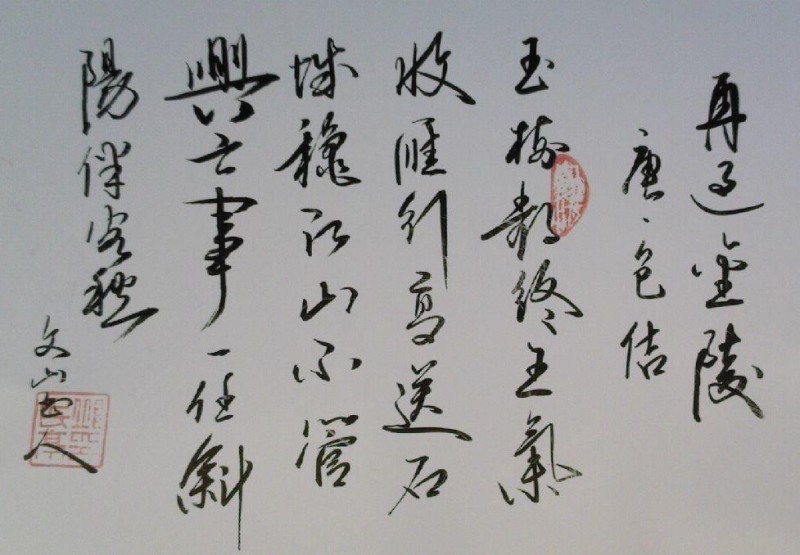 再過金陵
唐、包佶
玉樹歌終王氣
收雁行高送石
城穐江山不管
興亡事一任斜
陽伴客愁
文山人